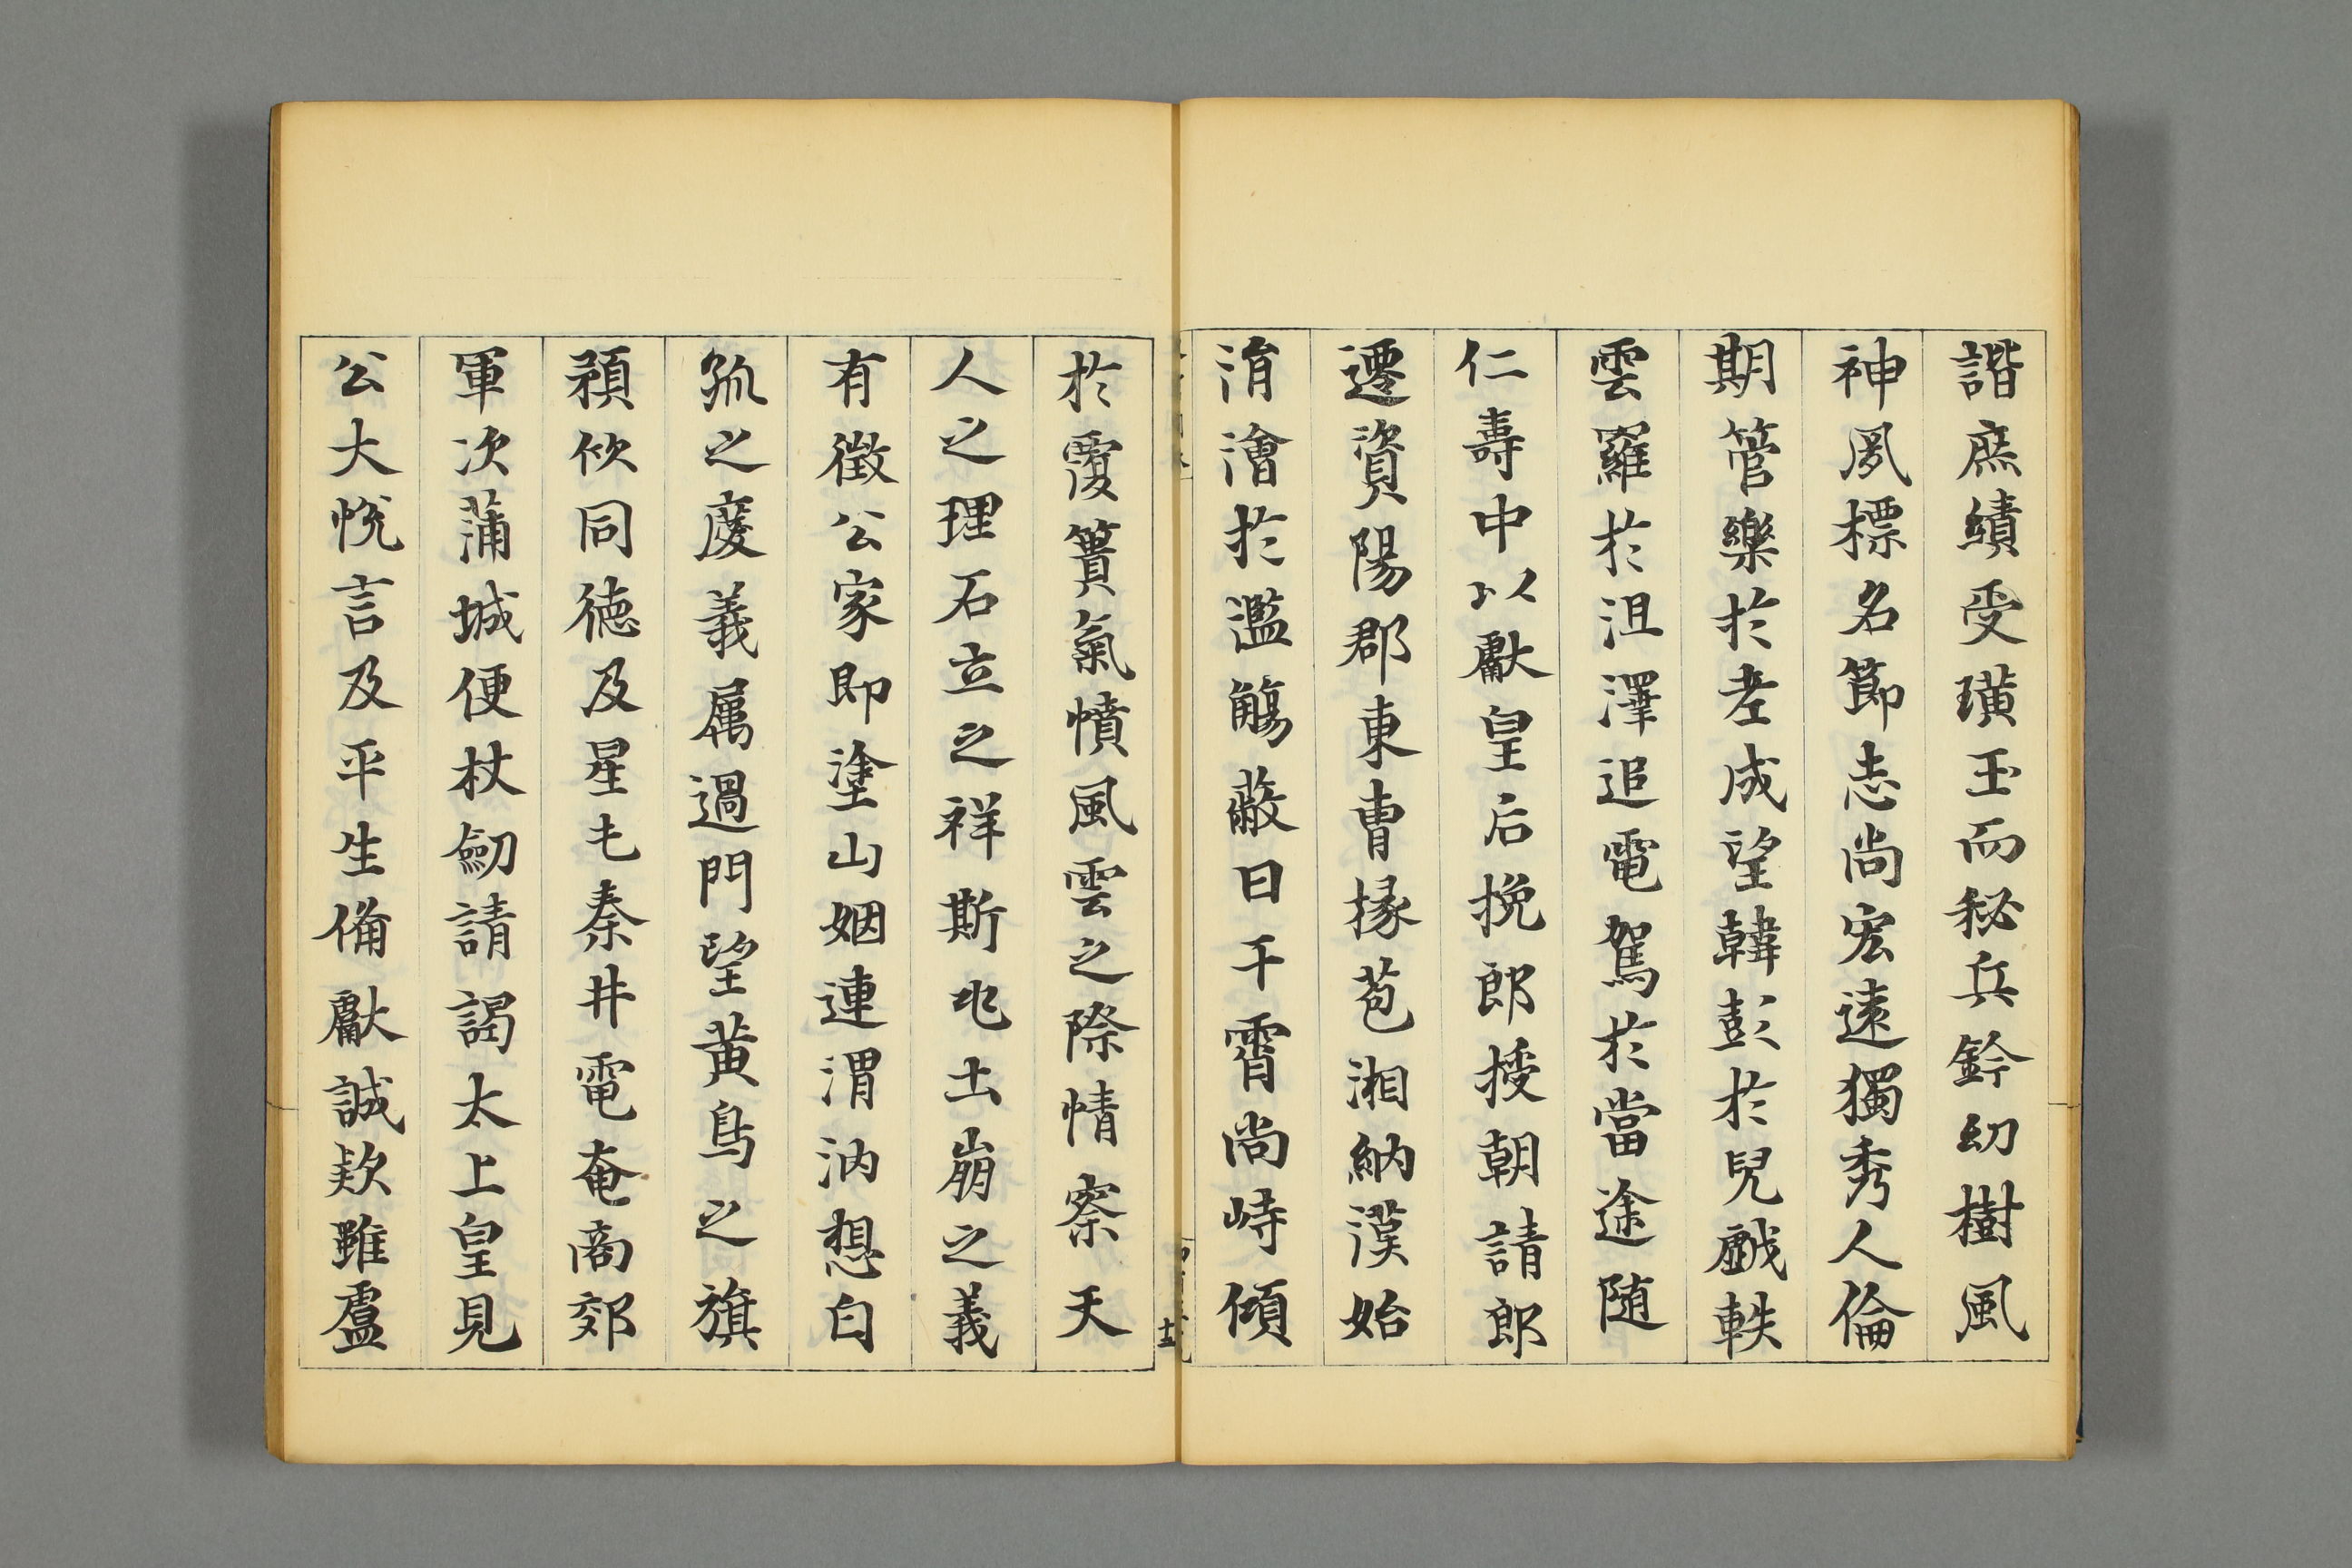 諧庶績受璜玉而秘兵鈐幼樹風
神夙標名節志尚宏遠獨秀人倫
期管樂於老成望韓彭於兒戯軼
雲羅於沮澤追電駕於當途随
仁壽中以獻皇后挽郎授朝請郎
遷資陽郡東曹掾苞湘納漢始
淯澮於濫觴蔽日干霄尚峙傾
於覆簣氣憤風雲之際情察天
人之理石立之祥斯兆土崩之義
有徵公家即塗山姻連渭汭想白
狐之慶義属過門望黄鳥之旗
預佽同德及星乇秦井電奄商郊
軍次蒲城便杖劒請謁太上皇見
公大悦言及平生備獻誠欵雖盧